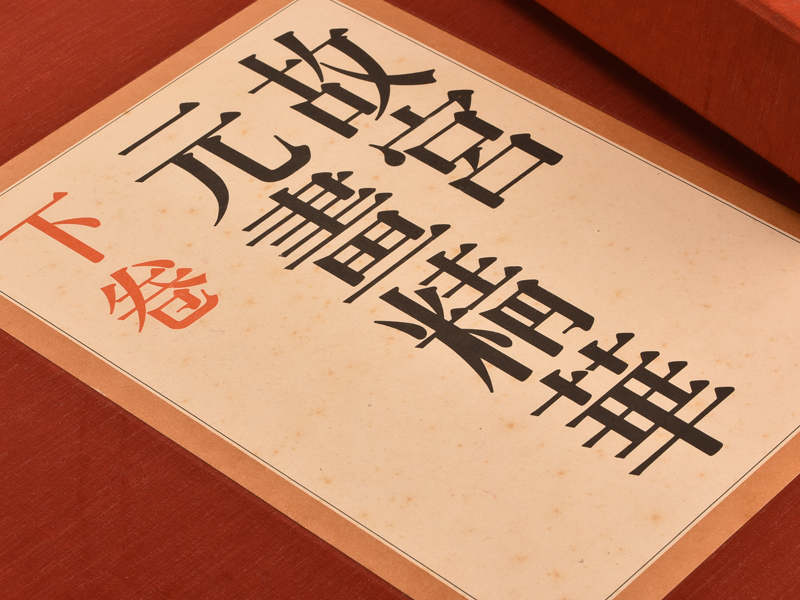 故宮
元畫精華
下卷